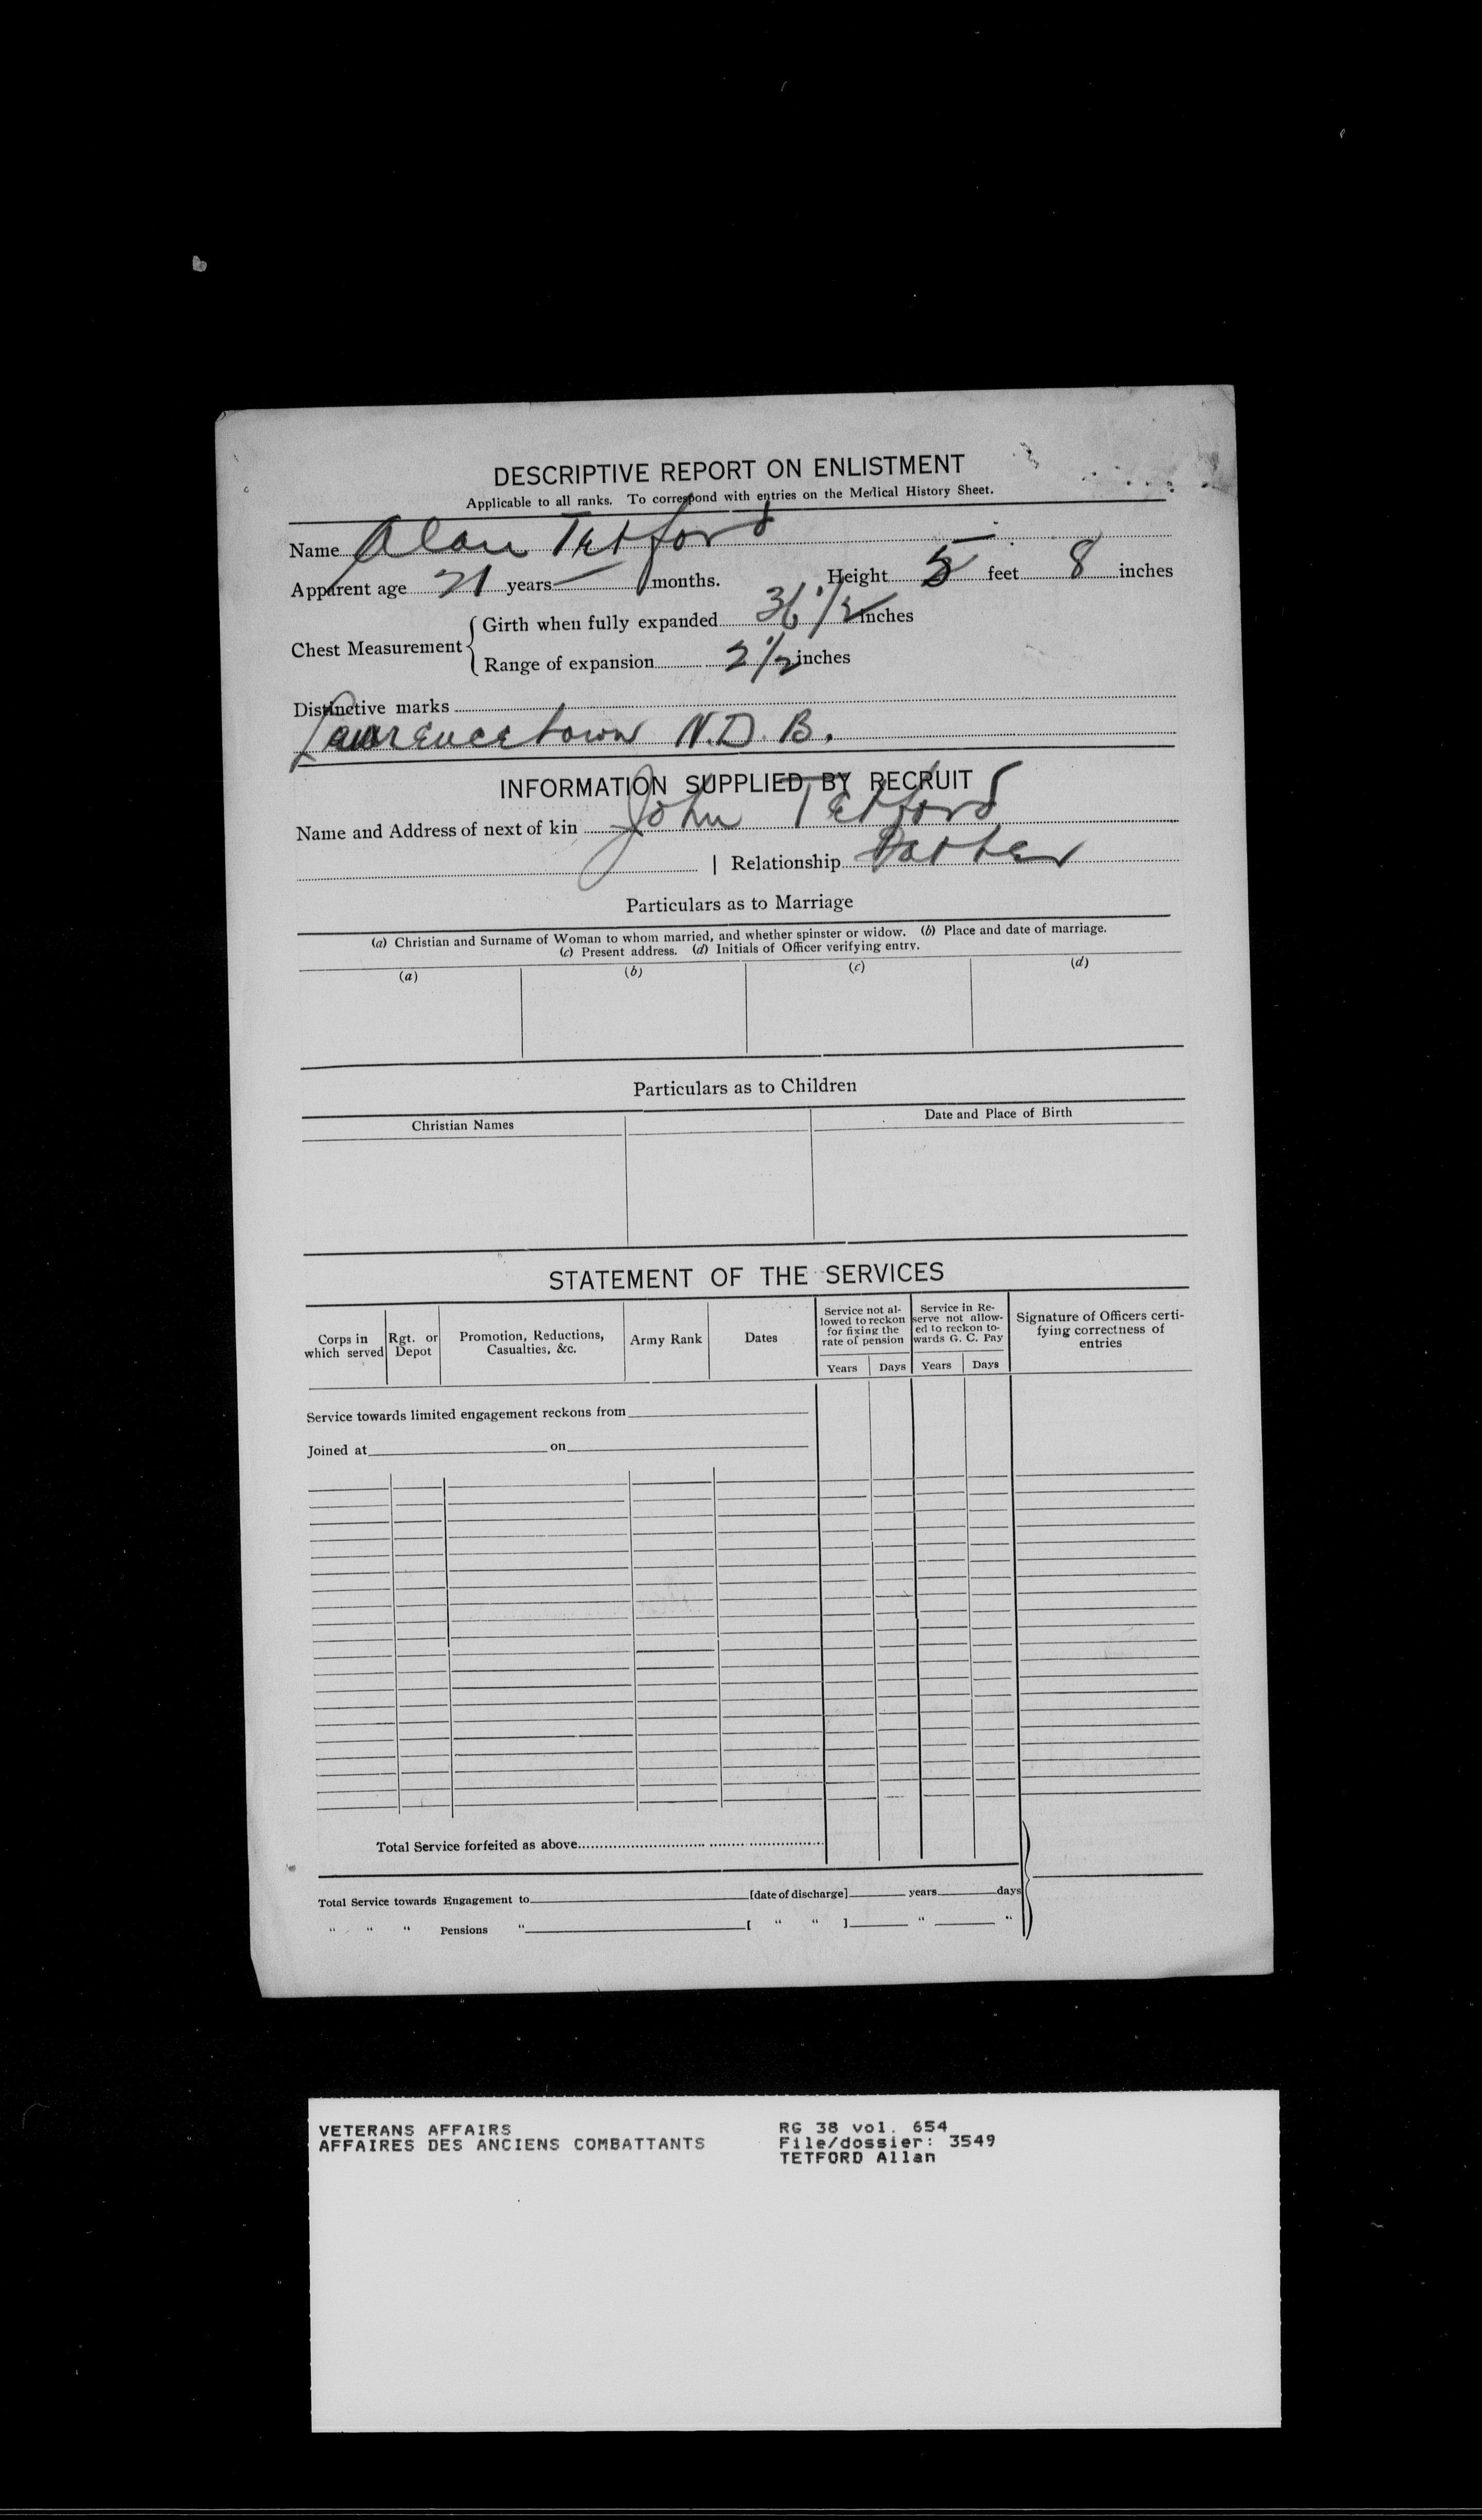 DESCRIPTIVE REPORT ON ENLISTMENT
Applicable to all ranks. To correspond with entries on the Medical History Sheet.
Name Alan Tetford
Apparent age 21 years — months. Height 5 feet 8 inches
Chest Measurement { Girth when fully expanded 36 1/2 inches
Range of expansion 2 1/2 inches
Distinctive marks
Lawrencetown N.D.B.
INFORMATION SUPPLIED BY RECRUIT
Name and Address of next of kin John Tetford
| Relationship Father
Particulars as to Marriage
(a) Christian and Surname of Woman to whom married, and whether spinster or widow. (b) Place and date of marriage.
(c) Present address. (d) Initials of Officer verifying entry.
(a) (b) (c) (d)
Particulars as to Children
Christian Names Date and Place of Birth
STATEMENT OF THE SERVICES
Corps in which served Rgt. or Depot Promotion, Reductions, Casualties, &c. Army Rank Dates Service not allowed to reckon for fixing the rate of pension Service in Reserve not allowed to reckon towards G. C. Pay Signature of Officers certifying correctness of entries
Years Days Years Days
Service towards limited engagement reckons from
Joined at on
Total Service forfeited as above
Total Service towards Engagement to [date of discharge] years days
" " " Pensions " [ " " ] " "
VETERANS AFFAIRS RG 38 vol. 654
AFFAIRES DES ANCIENS COMBATTANTS File/dossier: 3549
TETFORD Allan